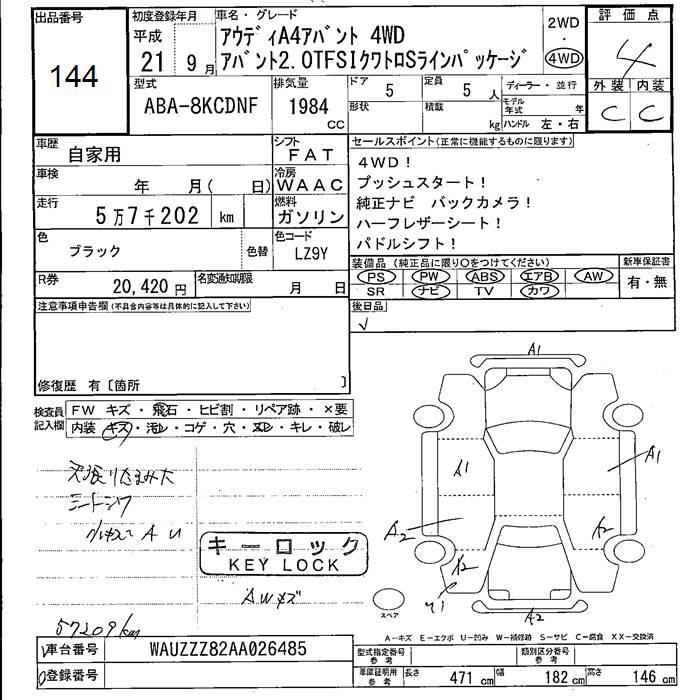 出品番号
144
初度登録年月
平成
21 9月
車名・グレード
アウディA4アバント 4WD
アバント2.0TFSIクワトロSラインパッケージ
2WD
・
4WD
評価点
4
外装 内装
C C
型式
ABA-8KCDNF
排気量
1984
CC
ドア
5
定員
5 人
形状
積載
kg
ディーラー・並行
モデル年式 年
ハンドル 左・右
車歴
自家用
シフト
FAT
車検
年 月( 日)
冷房
WAAC
走行
5万7千202 km
燃料
ガソリン
色
ブラック
色替
色コード
LZ9Y
R券
20,420円
名変通知期限
月 日
セールスポイント(正常に機能するものに限ります)
4WD!
プッシュスタート!
純正ナビ バックカメラ!
ハーフレザーシート!
パドルシフト!
装備品(純正品に限り○をつけてください)
PS PW ABS エアB AW
SR ナビ TV カワ
新車保証書
有・無
後日品
✓
注意事項申告欄(不具合内容等は具体的に記入して下さい)
修復歴 有〔箇所 〕
検査員記入欄
FW キズ・飛石・ヒビ割・リペア跡・×要
内装 キズ・汚レ・コゲ・穴・スレ・キレ・破レ
天張りたるみ大
シートシワ
A U
キーロック
KEY LOCK
AWキズ
57209km
A1
A1
A1
A2
A2
A2
Y1
A2
スペア
A-キズ E-エクボ U-凹み W-補修跡 S-サビ C-腐食 XX-交換済
車台番号
WAUZZZ82AA026485
登録番号
型式指定番号
参考
類別区分番号
参考
車庫証明用
参考
長さ 471cm 幅 182cm 高さ 146cm